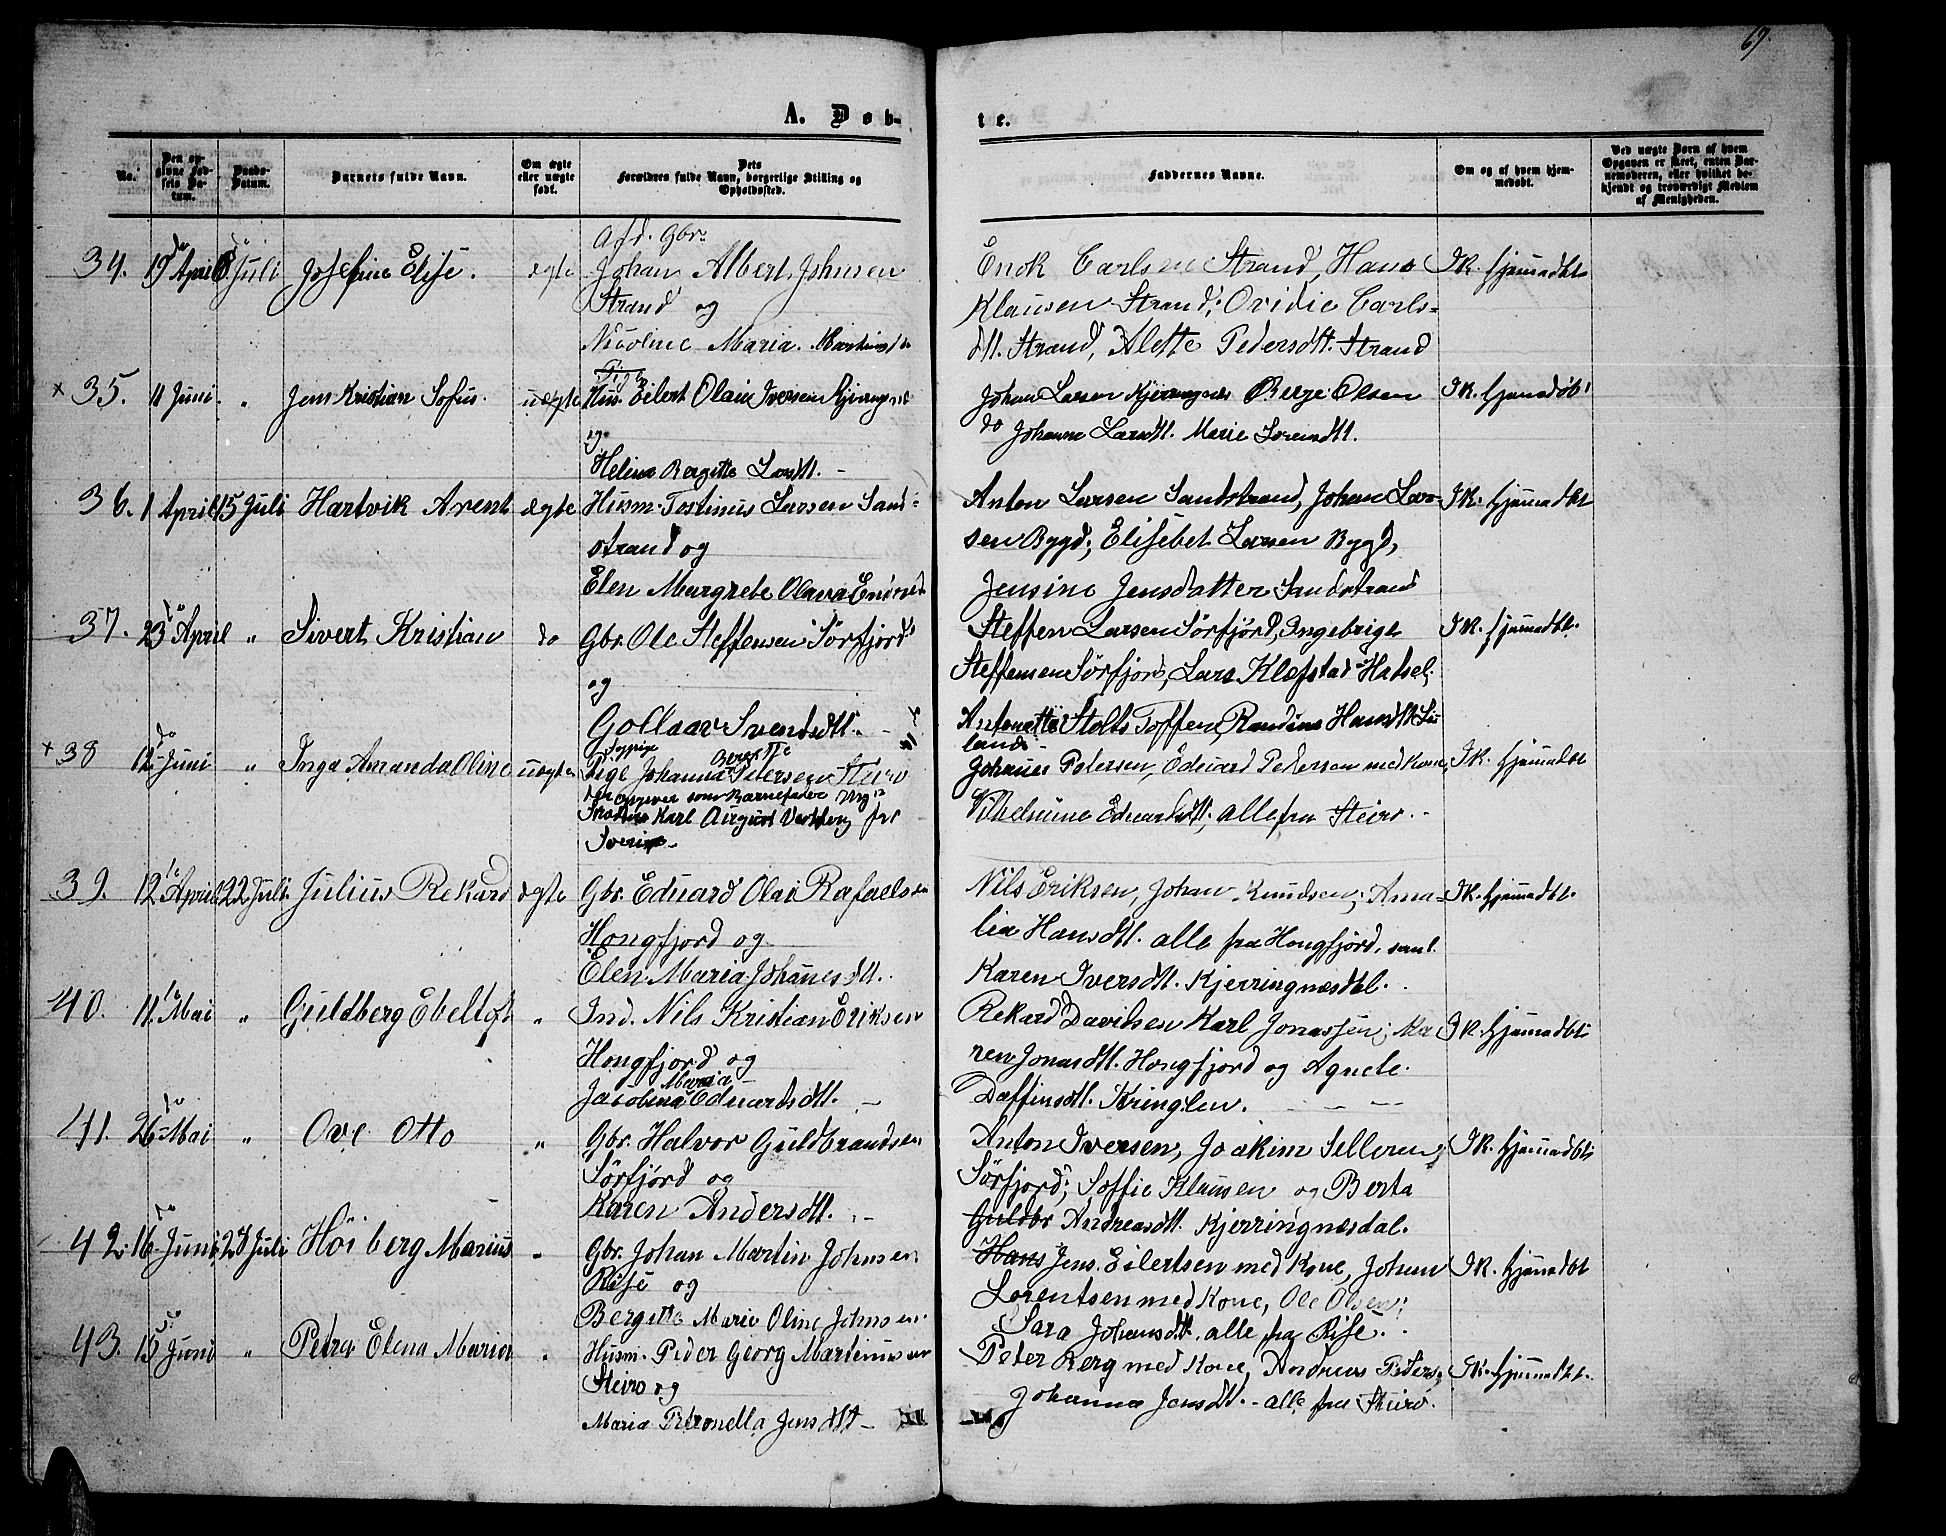 69.
A. Døb-
te.
No.
Den opgivne Fødsels Datum.
Daabs-Datum.
Barnets fulde Navn.
Om ægte eller uægte født.
Dets Forældres fulde Navn, borgerlige Stilling og Opholdssted.
Faddernes Navne.
Om og af hvem hjemmedøbt.
Ved uægte Børn af hvem Opgaven er skeet, enten Barnemoderen, eller hvilket bekjendt og troværdigt Medlem af Menigheden.
34. 19 April 8 Juli Josefine Elise. ægte
Afd. Gbr.
Johan Albert Johnsen
Strand og
Nicoline Maria
Enok Carlsen Strand, Hans
Klausen Strand; Ovidie Carls-
dtt. Strand, Alette Pedersdtt. Strand
IK. hjemmedbt
× 35. 11 Juni " Jens Kristian Sofus. uægte
Hus. Eilert Olai Iversen
og
Helina Bergitte Larsdtt. -
Johan Larsen Kjerringnes Berge Olsen
do Johanna Larsdtt. Marie Sørensdtt.
IK. hjemmedøbt
36. 1 April 15 Juli Hartvik Arent ægte
Husm. Tostinus Larsen Sand-
strand og
Elen Margrete Olava
Anton Larsen Sandstrand, Johan Lar-
sen Bygd; Elisebet Larsen Bygd,
Jensine Jensdatter Sandstrand
IK. hjemmedbt
37. 23 April " Sivert Kristian do
Gbr. Ole Steffensen Sörfjord
og
Gollaar Svendsdtt. -
Steffen Larsen Sörfjord, Ingebrigt
Steffensen Sörfjord, Lars Klefstad Hatsel;
Antonette Stolts Toffen, Randina Hansdtt
lands -
IK. hjemmedbt.
× 38 12 Juni " Inga Amanda Oline uægte
Pige Johanna Petersen Steiro
der opgiver som Barnefader Ung
Karl August for
Sverige -
Johanes Petersen, Eduard Pedersen med Kone,
Vilhelmine Eduardsdtt, alle fra Steiro. -
IK. hjemmedbt
39. 12 April 22 Juli. Julius Rekard ægte
Gbr. Eduard Olai Rafaelsen
Hongfjord og
Elen Maria Johanesdtt.
Nils Eriksen, Johan Knudsen; Ama-
lia Hansdtt. alle fra Hongfjord. samt
Karen Iversdtt. Kjerringnesdal.
IK. hjemmedbt.
40. 11. Mai " Guldberg Ebeltoft "
Ind. Nils Kristian Eriksen
Hongfjord og
Maria
Jacobina Eduardsdtt. -
Rekard Davidsen Karl Jonassen; Ka
ren Jonasdtt. Hongfjord og Agnete
Daffinsdtt. Kringlen. - - -
IK. hjemmedbt
41. 26 Mai " Ove Otto "
Gbr. Halvor Guldbrandsen
Sörfjord og
Karen Andersdtt. -
Anton Iversen, Joakim Selleren,
Sörfjord; Soffie Klausen og Berta
Guldbr Andreasdtt. Kjerringnesdal.
IK. hjemmedbt
42. 16 Juni 28 Juli Höiberg Marius "
Gbr. Johan Martin Johnsen
Rise og
Bergitte Marie Oline Johnsen.
Hans Jens Eilertsen med Kone, Johan
Lorentsen med Kone, Ole Olsen;
Sara Johansdtt. alle fra Rise. -
IK. hjemmedbt
43. 15 Juni " Petra Elena Maria "
Husm. Peder Georg Martinussen
Steiro og
Maria Petronella Jensdtt -
Peter Berg med Kone, Andreas Peters;
Johanna Jensdtt. - alle fra Steiro.
IK. hjemmedbt.